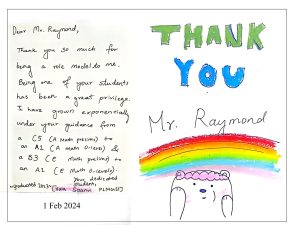 Dear Mr. Raymond,
Thank you so much for
being a role model to me.
Being one of your students
has been a great privilege.
I have grown exponentially
under your guidance from
a C5 (A math prelims) to
an A1 (A Math O-level) &
a B3 (E math prelims) to
an A1 (E Math O-levels).
Your dedicated
student,
THANK
YOU
Mr. Raymond
1 Feb 2024